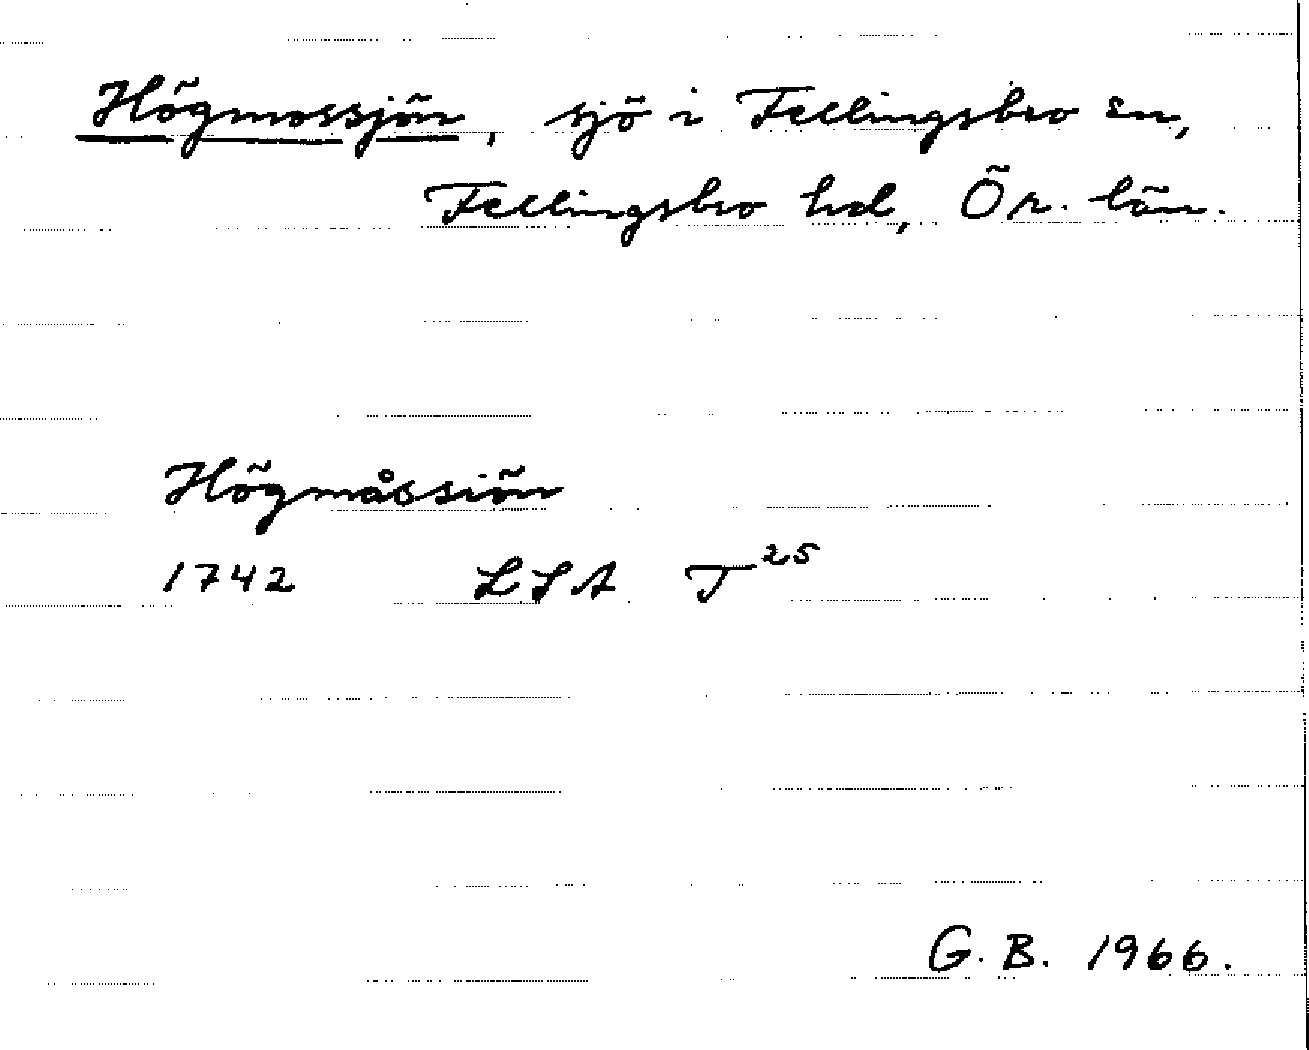 Högmossjön, sjö i Fellingsbro sn,
Fellingsbro hd, Ör. län.
Högmåssiön
1742 LSA T25
G. B. 1966.